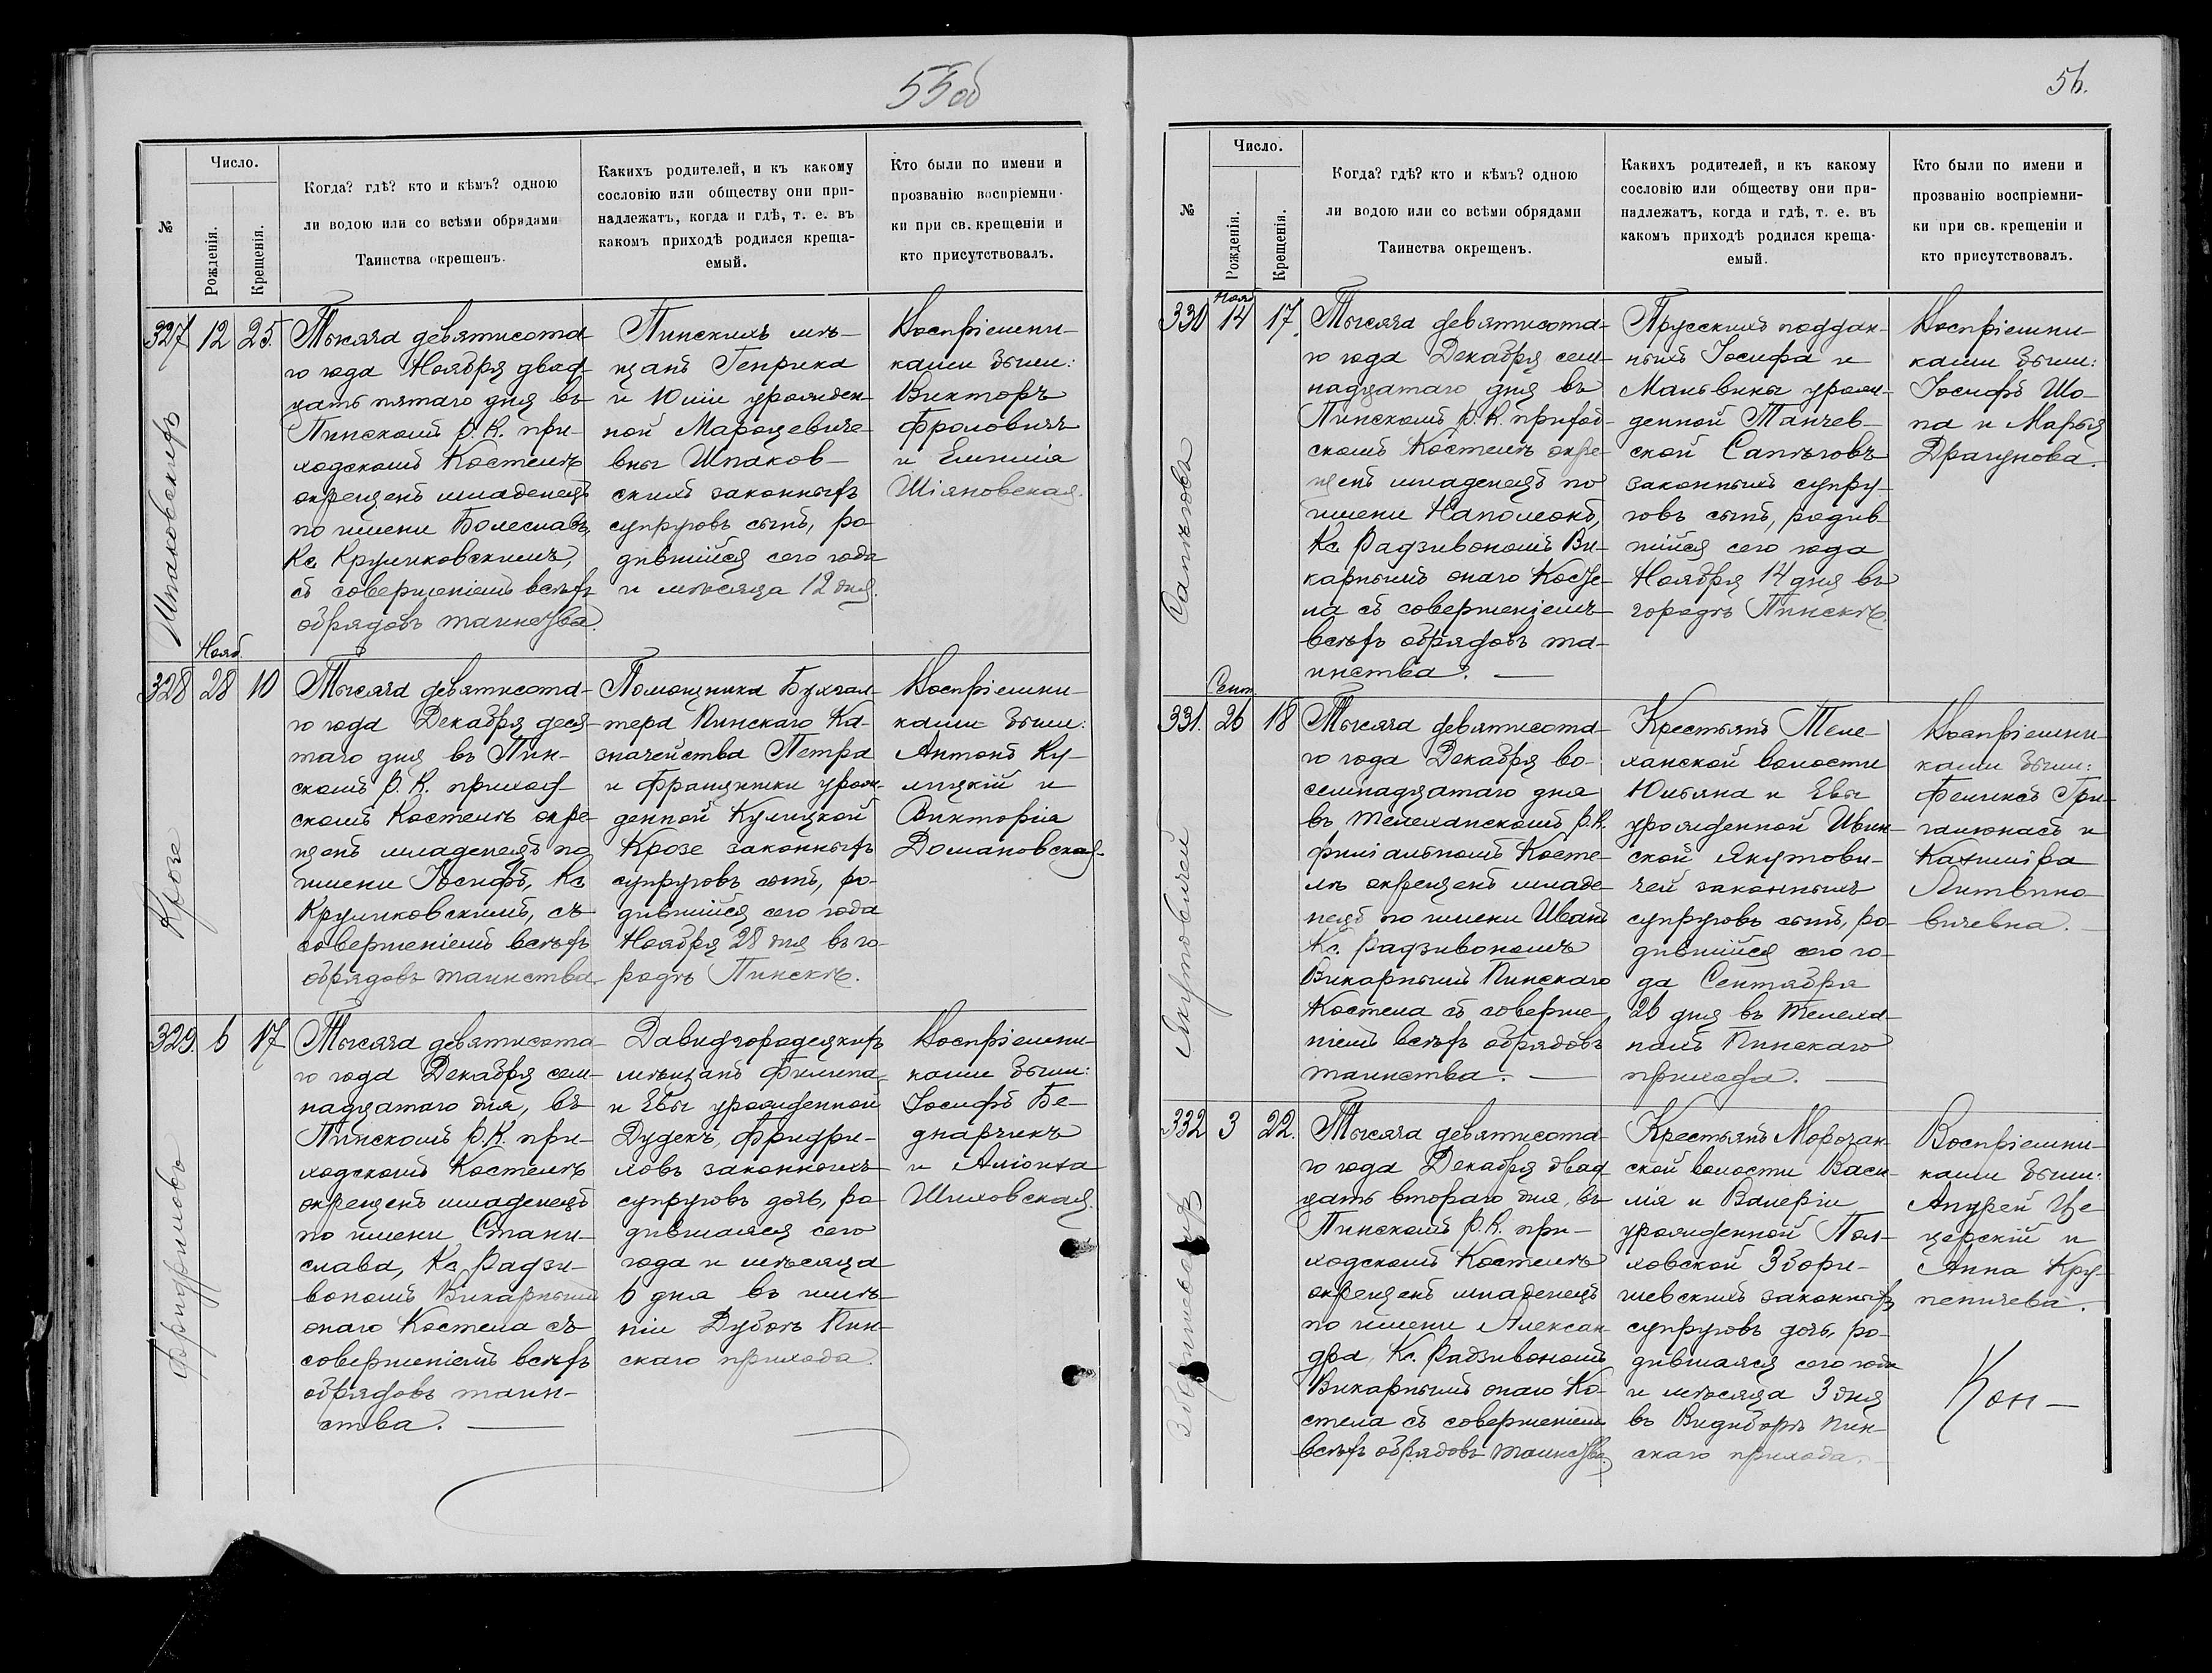 55об
№
Число.
Рожденія.
Крещенія.
Когда? гдѣ? кто и кѣмъ? одною
ли водою или со всѣми обрядами
Таинства окрещенъ.
Какихъ родителей, и къ какому
сословію или обществу они при-
надлежатъ, когда и гдѣ, т. е. въ
какомъ приходѣ родился креща-
емый.
Кто были по имени и
прозванію воспріемни-
ки при св. крещеніи и
кто присутствовалъ.
327 12 25.
Шпаковскихъ
Тысяча девятисота-
го года Ноября двад-
цать пятаго дня въ
Пинскомъ Р. К. при-
ходскомъ Костелѣ
окрещенъ младенецъ
по имени Болеславъ,
Кс. Круликовскимъ,
съ совершеніемъ всѣхъ
обрядовъ таинства.
Пинскихъ мѣ-
щанъ Генрика
и Юліи урожден-
ной Мароцевиче-
вны Шпаков-
скихъ законныхъ
супруговъ сынъ, ро-
дившійся сего года
и мѣсяца 12 дня.
Воспріемни-
ками были:
Викторъ
Фроловичъ
и Емилія
Шіяновская.
Нояб.
328 28 10
Крозе
Тысяча девятисота-
го года Декабря деся-
таго дня въ Пин-
скомъ Р. К. приход-
скомъ Костелѣ окре-
щенъ младенецъ по
имени Іосифъ, Кс.
Круликовскимъ, съ
совершеніемъ всѣхъ
обрядовъ таинства.
Помощника Бухгал-
тера Пинскаго Ка-
значейства Петра
и Францишки урож-
денной Кулицкой
Крозе законныхъ
супруговъ сынъ, ро-
дившійся сего года
Ноября 28 дня въ го-
родѣ Пинскѣ.
Воспріемни-
ками были:
Антонъ Ку-
лицкій и
Викторія
Домановская.
329. 6 17
Фридриховъ
Тысяча девятисота-
го года Декабря сем-
надцатаго дня, въ
Пинскомъ Р. К. при-
ходскомъ Костелѣ
окрещенъ младенецъ
по имени Стани-
слава, Кс. Радзи-
вономъ Викарнымъ
онаго Костела съ
совершеніемъ всѣхъ
обрядовъ таин-
ства.
Давидгородецкихъ
мѣщанъ Филипа
и Евы урожденной
Дудекъ, Фридри-
ховъ законныхъ
супруговъ дочь, ро-
дившаяся сего
года и мѣсяца
6 дня въ имѣ-
ніи Дубоѣ Пин-
скаго прихода.
Воспріемни-
ками были:
Іосифъ Бе-
днарчикъ
и Антонза
Шиховская.
56.
№
Число.
Рожденія.
Крещенія.
Когда? гдѣ? кто и кѣмъ? одною
ли водою или со всѣми обрядами
Таинства окрещенъ.
Какихъ родителей, и къ какому
сословію или обществу они при-
надлежатъ, когда и гдѣ, т. е. въ
какомъ приходѣ родился креща-
емый.
Кто были по имени и
прозванію воспріемни-
ки при св. крещеніи и
кто присутствовалъ.
Нояб.
330 14 17.
Сапѣговъ
Тысяча девятисота-
го года Декабря сем-
надцатаго дня въ
Пинскомъ Р. К. приход-
скомъ Костелѣ окре-
щенъ младенецъ по
имени Наполеонъ,
Кс. Радзивономъ Ви-
карнымъ онаго Косте-
ла съ совершеніемъ
всѣхъ обрядовъ та-
инства.
Прусскихъ поддан-
ныхъ Іосифа и
Мальвины урож-
денной Танчев-
ской Сапѣговъ
законныхъ супру-
говъ сынъ, родив-
шійся сего года
Ноября 14 дня въ
городѣ Пинскѣ.
Воспріемни-
ками были:
Іосифъ Шо-
па и Марья
Драгунова.
Сент.
331. 26 18
Якутовичей
Тысяча девятисота-
го года Декабря во-
семнадцатаго дня
въ Телеханскомъ Р. К.
филіальномъ Косте-
лѣ окрещенъ младе-
нецъ по имени Иванъ
Кс. Радзивономъ
Викарнымъ Пинскаго
Костела съ соверше-
ніемъ всѣхъ обрядовъ
таинства.
Крестьянъ Теле-
ханской волости
Юльяна и Евы
урожденной Ивин-
ской Якутови-
чей законныхъ
супруговъ сынъ, ро-
дившійся сего го-
да Сентября
26 дня въ Телеха-
нахъ Пинскаго
прихода.
Воспріемни-
ками были:
Феликсъ Гри-
галюнасъ и
Казиміра
Литвино-
вичевна.
332 3 22.
Тысяча девятисота-
го года Декабря двад-
цать втораго дня, въ
Пинскомъ Р. К. при-
ходскомъ Костелѣ
окрещенъ младенецъ
по имени Алексан-
дра, Кс. Радзивономъ
Викарнымъ онаго Ко-
стела съ совершеніемъ
всѣхъ обрядовъ таинства.
Крестьянъ Морочан-
ской волости Васи-
лія и Валеріи
урожденной Пол-
ховской Збори-
шевскихъ законныхъ
супруговъ дочь, ро-
дившаяся сего года
и мѣсяца 3 дня
въ Видиборѣ Пин-
скаго прихода.
Воспріемни-
ками были:
Андрей Це-
церскій и
Анна Кру-
пеничева.
Кон-